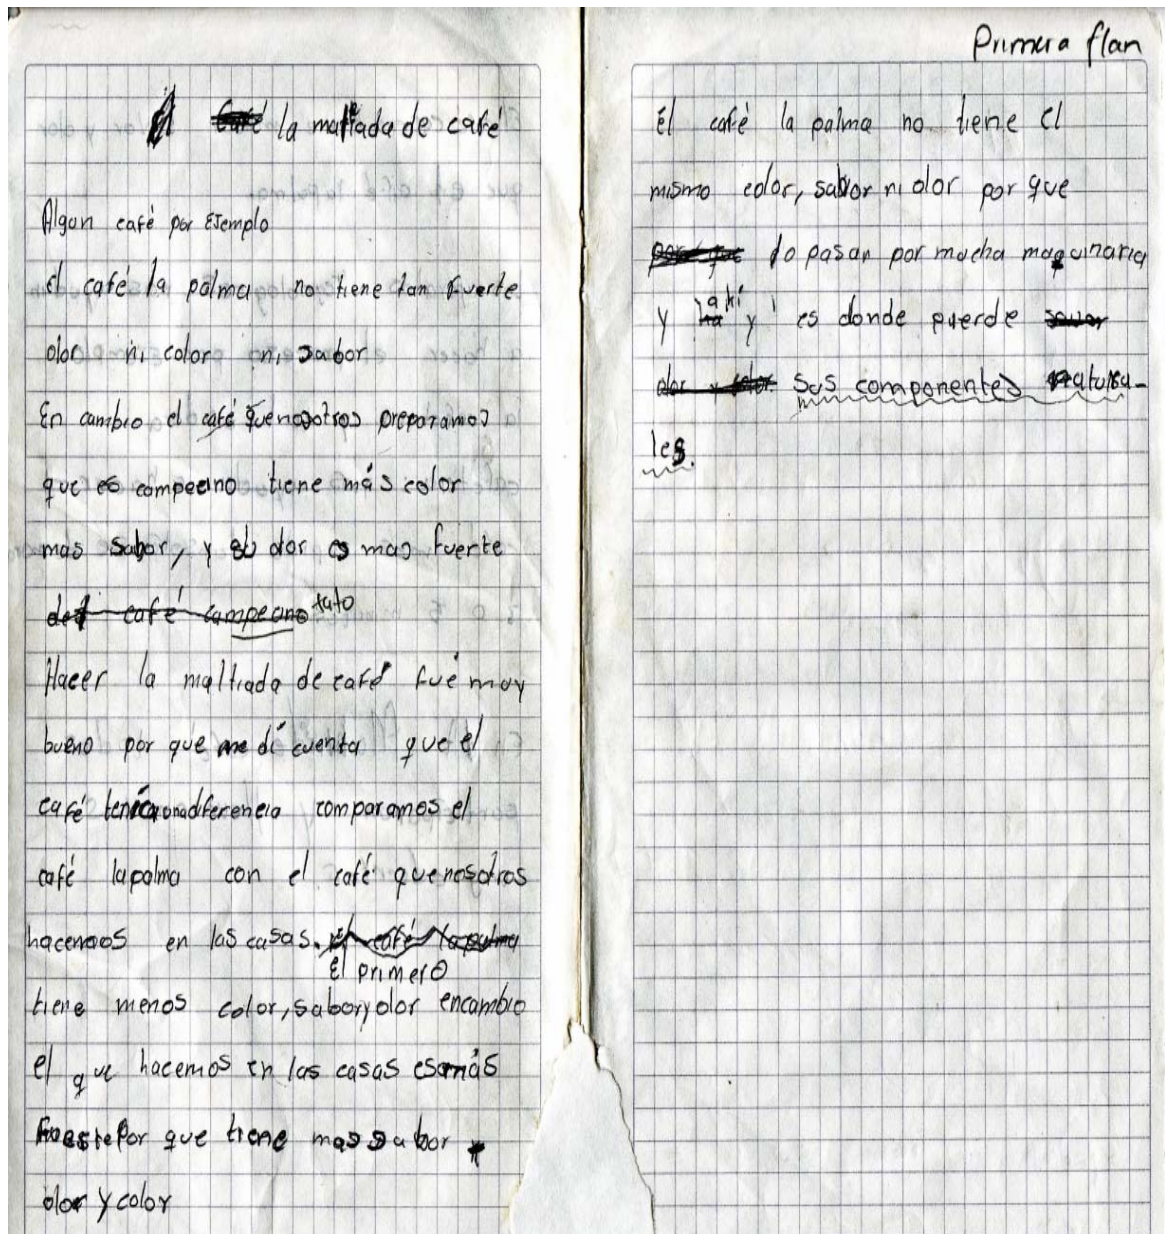 la maltiada de café
Algun café por Ejemplo
el café la palma no tiene tan fuerte
olor ni color ni sabor
En cambio el café que nosotros preparamos
que es campecino tiene más color
mas sabor, y su olor es mas fuerte
del café campeano tuto
Hacer la maltiada de café fué muy
bueno por que me di cuenta que el
café tenía una diferencia comparamos el
café la palma con el café que nosotros
hacemos en las casas. el café la palma
El primero
tiene menos color, sabor y olor encambio
el que hacemos en las casas es más
fuerte Por que tiene mas sabor
olor y color
Primera flan
El café la palma no tiene el
mismo color, sabor ni olor por que
por que lo pasan por mucha maquinaria
y aki y es donde pierde sabor
olor y color sus componentes natura-
les.